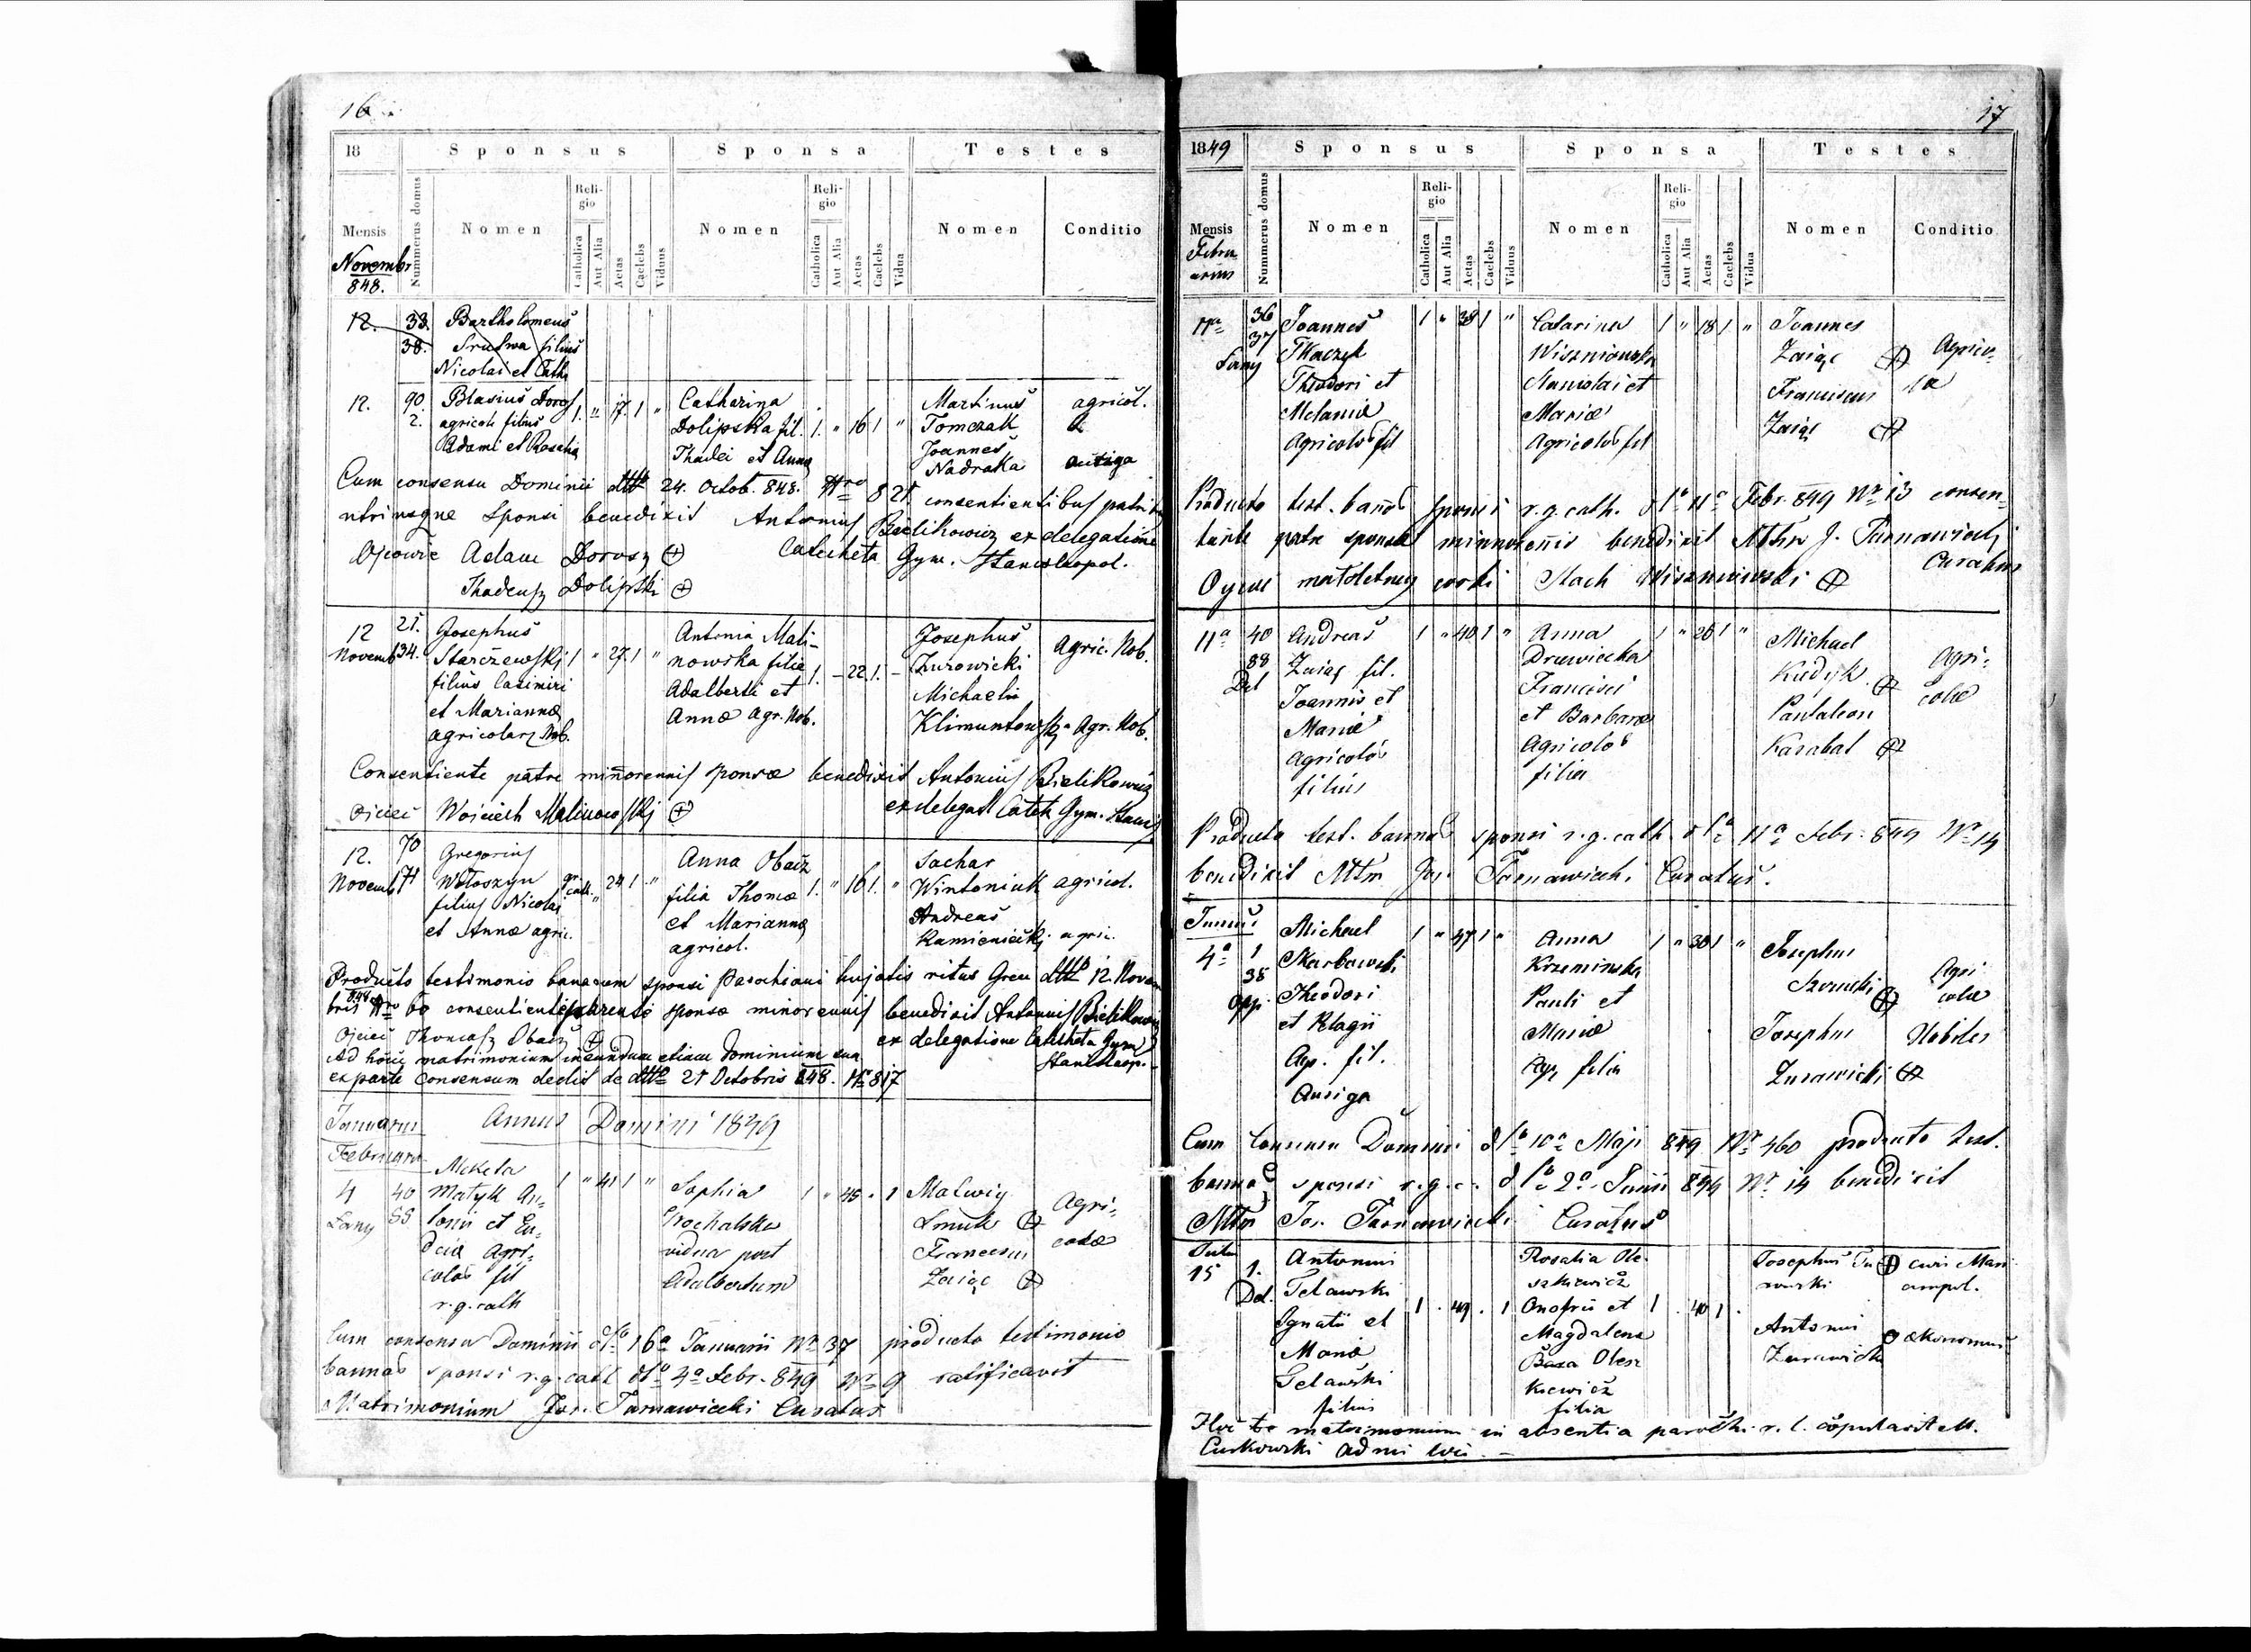 16
18 Sponsus Sponsa Testes
Mensis Nummerus domus Nomen Religio Catholica Aut Alia Aetas Caelebs Viduus Nomen Religio Catholica Aut Alia Aetas Caelebs Vidua Nomen Conditio
Novembr
848.
12. 33. Bartholomeus
38. filius
Nicolai et Cath
12. 90. Blasius Dorosz 1. " 17. 1 " Catharina Martinus agricol.
2. agricola filius Dolipska fil. 1. " 16 1 " Tomczak
Adami et Rosalia Thadei et Anna Joannes
Nadraka auriga
Cum consensu Dominii dtto 24. Octob. 848. Nro 821. consentientibus patribus
utriusque sponsi benedixit Antonius Bielikowicz ex delegatione
Ojcowie Adam Dorosz Catecheta Gym. Stanislaopol.
Thadeusz Dolipski
12 21. Josephus Antonia Mali- Josephus Agric. Nob.
Novemb 34. Starczewski 1 " 27. 1 " nowska filia 1. - 22. 1. - Zurowicki
filius Casimiri Adalberti et Michaelis
et Marianna Anna Agr. Nob. Klimuntowski Agr. Nob.
agricolar Nob.
Consentiente patre minorennis sponsae benedixit Antonius Bielikowicz
Ojciec Wojciech Malinowski ex delegat Catech Gym. Stanis
12. 70 Gregorius Anna Obacz Sachar
Novemb 71 Wołoszyn gr. cath. " 24 1 " filia Thoma 1. " 16 1. " Wintoniuk agricol.
filius Nicolai et Marianna Andreas
et Anna agric. agricol. Kamieniecki agric.
Producto testimonio bannorum sponsi Parochiani hujatis ritus Graeci dtto 12. Novem
bris 848 Nro 60 consentiente parente sponsa minorennis benedixit Antonius Bielikowicz
Ojciec Thomasz Obacz ex delegatione Catecheta Gym
Ad hoc matrimonium ineundum etiam Dominium sua Stanislaop.
ex parte Consensum dedit de dtto 21 Octobris 848. Nro 817
Januarius Annus Domini 1849
Februarius
4 40 Mikola 1 " 41 1 " Sophia 1 " 45 " 1 Malwig Agri-
Łany 55 Matyk An- Grochalska Smuk colae
tonii et Eu- vidua post Franciscus
docia Agri- Adalbertum Zaiąc
colar fil
r. g. cath
Cum consensu Dominii dto 16a Januarii Nr 37 producto testimonio
bannor sponsi r. g. cath dto 4a Febr. 849 Nr 9 ratificavit
Matrimonium Jos. Tarnawiecki Curatus
17
1849 Sponsus Sponsa Testes
Mensis Nummerus domus Nomen Religio Catholica Aut Alia Aetas Caelebs Viduus Nomen Religio Catholica Aut Alia Aetas Caelebs Vidua Nomen Conditio
Febru
arius
11a 36 Joannes 1 " 38 1 " Catarina 1 " 18 1 " Joannes Agrico-
37 Tkaczyk Wiszniowska Zaiąc la
Łany Theodori et Stanislai et Franciscus
Melania Maria Zaiąc
Agricolar fil Agricolar fil
Producto test. bannor sponsi r. g. cath. dto 11a Febr. 849 Nr 13 consen-
tiente patre sponsae minorennis benedixit Mtrm J. Tarnawiecki
Oyciec małoletniey corki Stach Wiszniowski Curatus
11a 40 Andreas 1 " 40 1 " Anna 1 " 26 1 " Michael Agri-
88 Zaiąc fil. Drawiecka Kudyk colae
Del Joannis et Francisci Pantaleon
Maria et Barbara Karabat
Agricolar Agricolar
filius filia
Producto test. bannor sponsi r. g. cath dto 11a Febr. 849 Nr 14
benedixit Mtm Jos. Tarnawiecki Curatus.
Junius
4a 1 Michael 1 " 47 1 " Anna 1 " 30 1 " Josephus Agri
38 Skarbowski Krzeminska colae
opp. Theodori Pauli et Josephus Nobiles
et Pelagii Maria Zurawicki
Agr. fil. Agr filia
Auriga
Cum consensu Dominii dto 10a Maji 849 Nr 460 producto test.
bannor sponsi r. g. c. dto 2a Junii 849 Nr 14 benedixit
Mtm Jos. Tarnawiecki Curatus
15 1. Antonius Rosalia Ole- Josephus Tu
Del. Telawski szkiewicz rowski
Ignatii et 1 . 49 . 1 Onofrii et 1 . 40 1 . Antonius oekonomus
Maria Magdalena Zurawicki
Gelawski Olesz
filius kiewicz
filia
Hoc matrimonium in absentia parochi r. l. copulavit M.
Curkowski